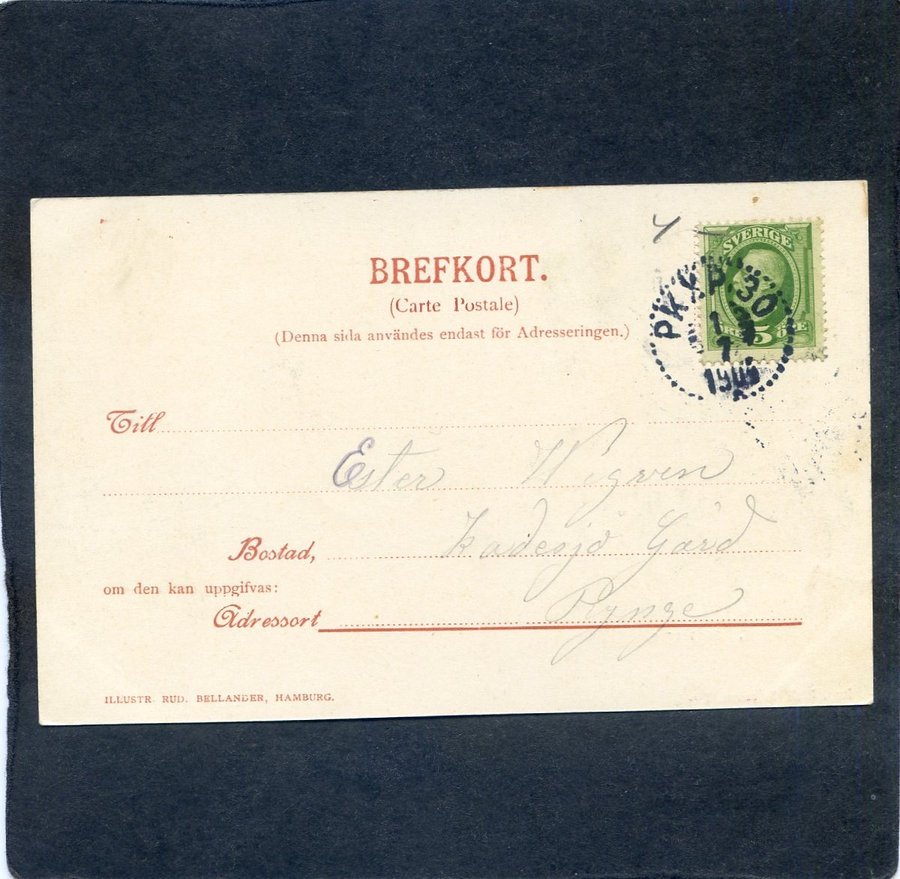 BREFKORT.
(Carte Postale)
(Denna sida användes endast för Adresseringen.)
SVERIGE
5
PKXP 30
Till
Ester Wigren
Bostad, Kadesjö Gård
om den kan uppgifvas:
Adressort Rynge
ILLUSTR. RUD. BELLANDER, HAMBURG.